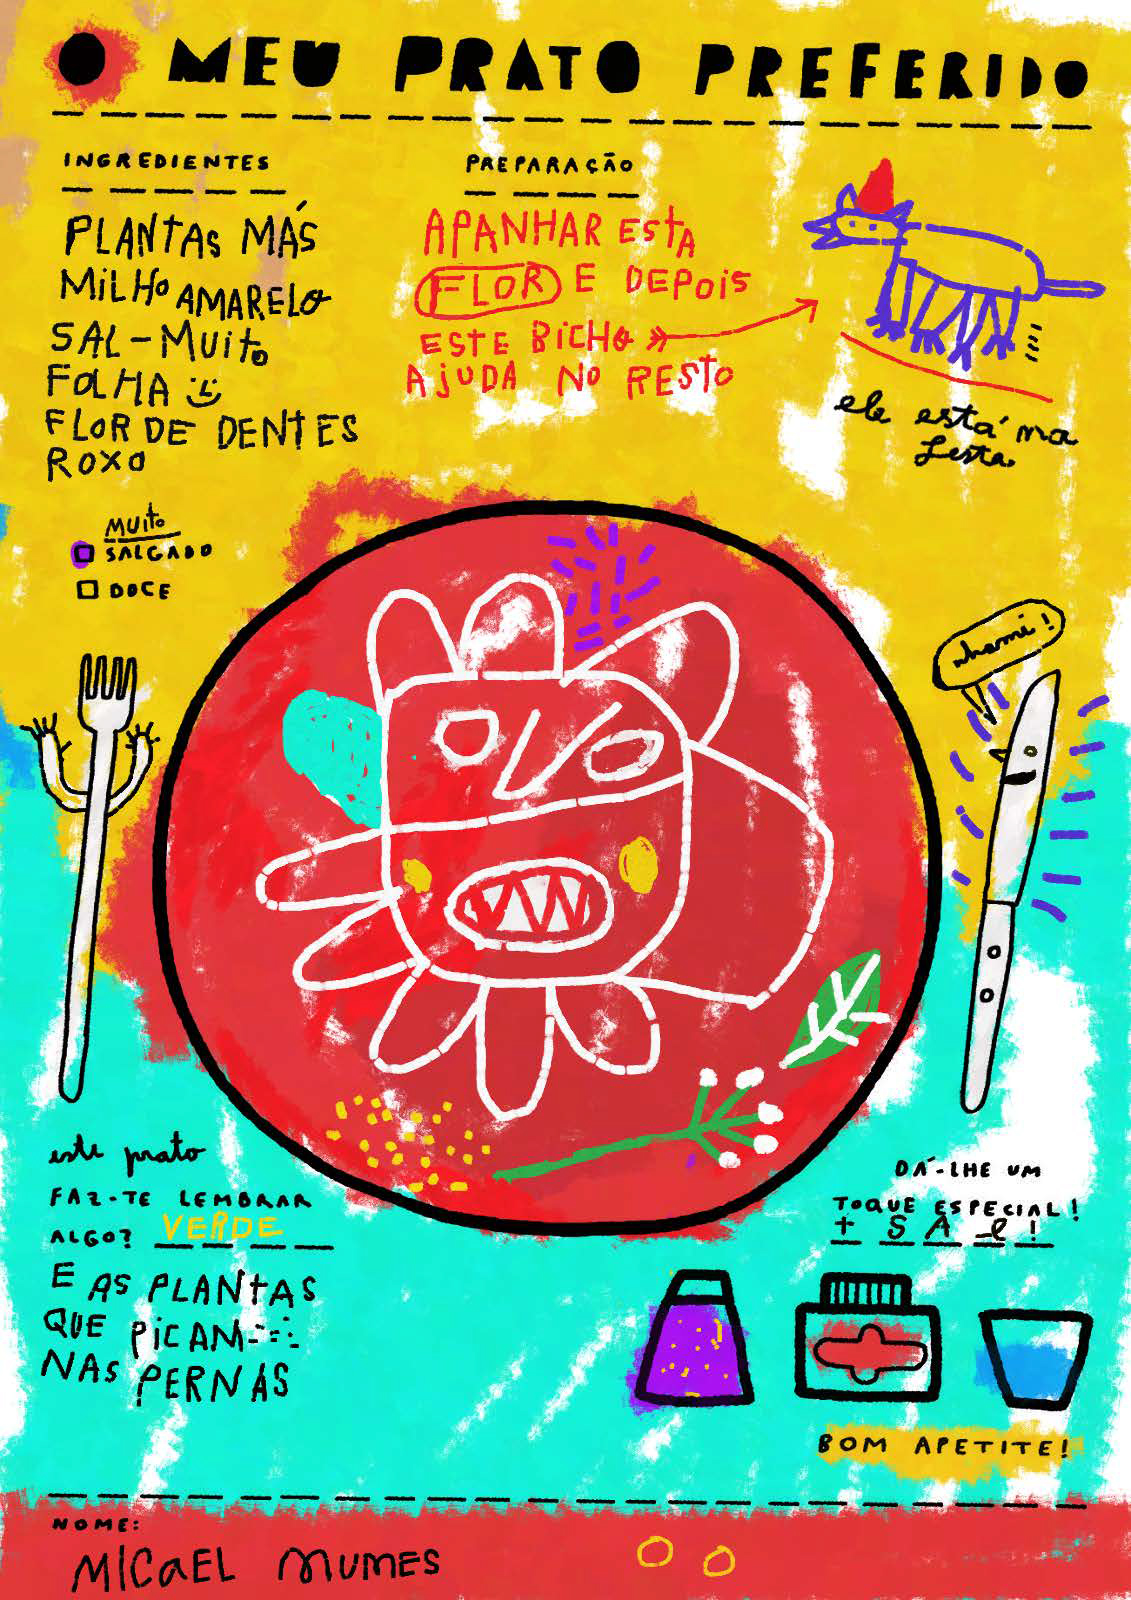 O MEU PRATO PREFERIDO
INGREDIENTES
PLANTAS MÁS
MILHO AMARELO
SAL-MUITO
FOLHA
FLOR DE DENTES
ROXO
MUITO
SALGADO
DOCE
PREPARAÇÃO
APANHAR ESTA
FLOR E DEPOIS
ESTE BICHO
AJUDA NO RESTO
ele está na
festa
nhami!
este prato
FAZ-TE LEMBRAR
ALGO? VERDE
E AS PLANTAS
QUE PICAM
NAS PERNAS
DÁ-LHE UM
TOQUE ESPECIAL!
+ SAL!
BOM APETITE!
NOME:
MICAEL NUMES